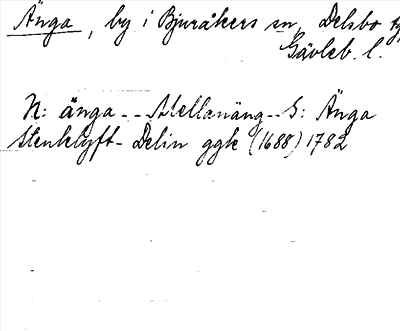 Änga, by i Bjuråkers sn, Delsbo tg,
Gävleb. l.
N: änga - - Mellanäng - - S: Änga
Stenklyft - Delin ggk (1688) 1782